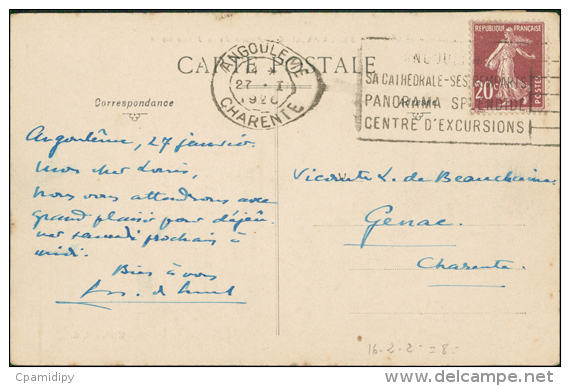 CARTE POSTALE
ANGOULEME
27 - I
192
CHARENTE
SA CATHEDRALE - SES REMPARTS
PANORAMA SPLENDIDE
CENTRE D'EXCURSIONS
REPUBLIQUE FRANÇAISE
20c
POSTES
Correspondance
Angoulême, 27 janvier.
Mon cher Louis,
Nous vous attendrons avec
grand plaisir pour déjeu-
ner samedi prochain à
midi.
Bien à vous
Vicomte L. de Beauchaine
Genac.
Charente.
16-2-2- = 8-
Cpamidipy
© delcampe.net